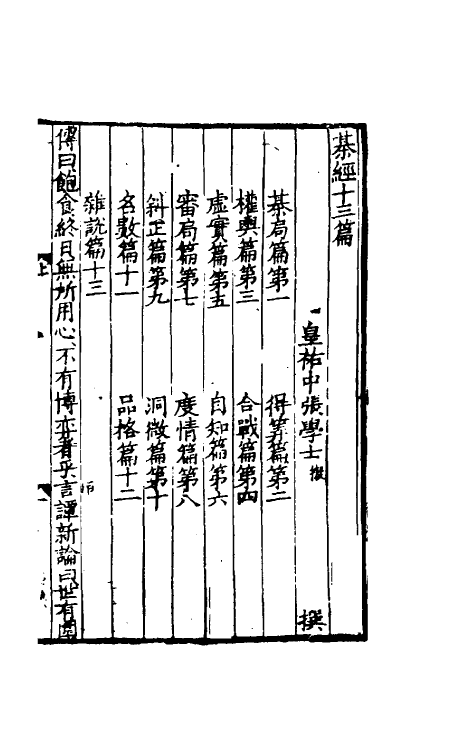 棊經十三篇
皇祐中張學士擬撰
棊局篇第一 得筭篇第二
權輿篇第三 合戰篇第四
虛實篇第五 自知篇第六
審局篇第七 度情篇第八
斜正篇第九 洞微篇第十
名數篇十一 品格篇十二
雜說篇十三
傳曰飽食終日無所用心不有博弈者乎言譚新論曰世有圍
上